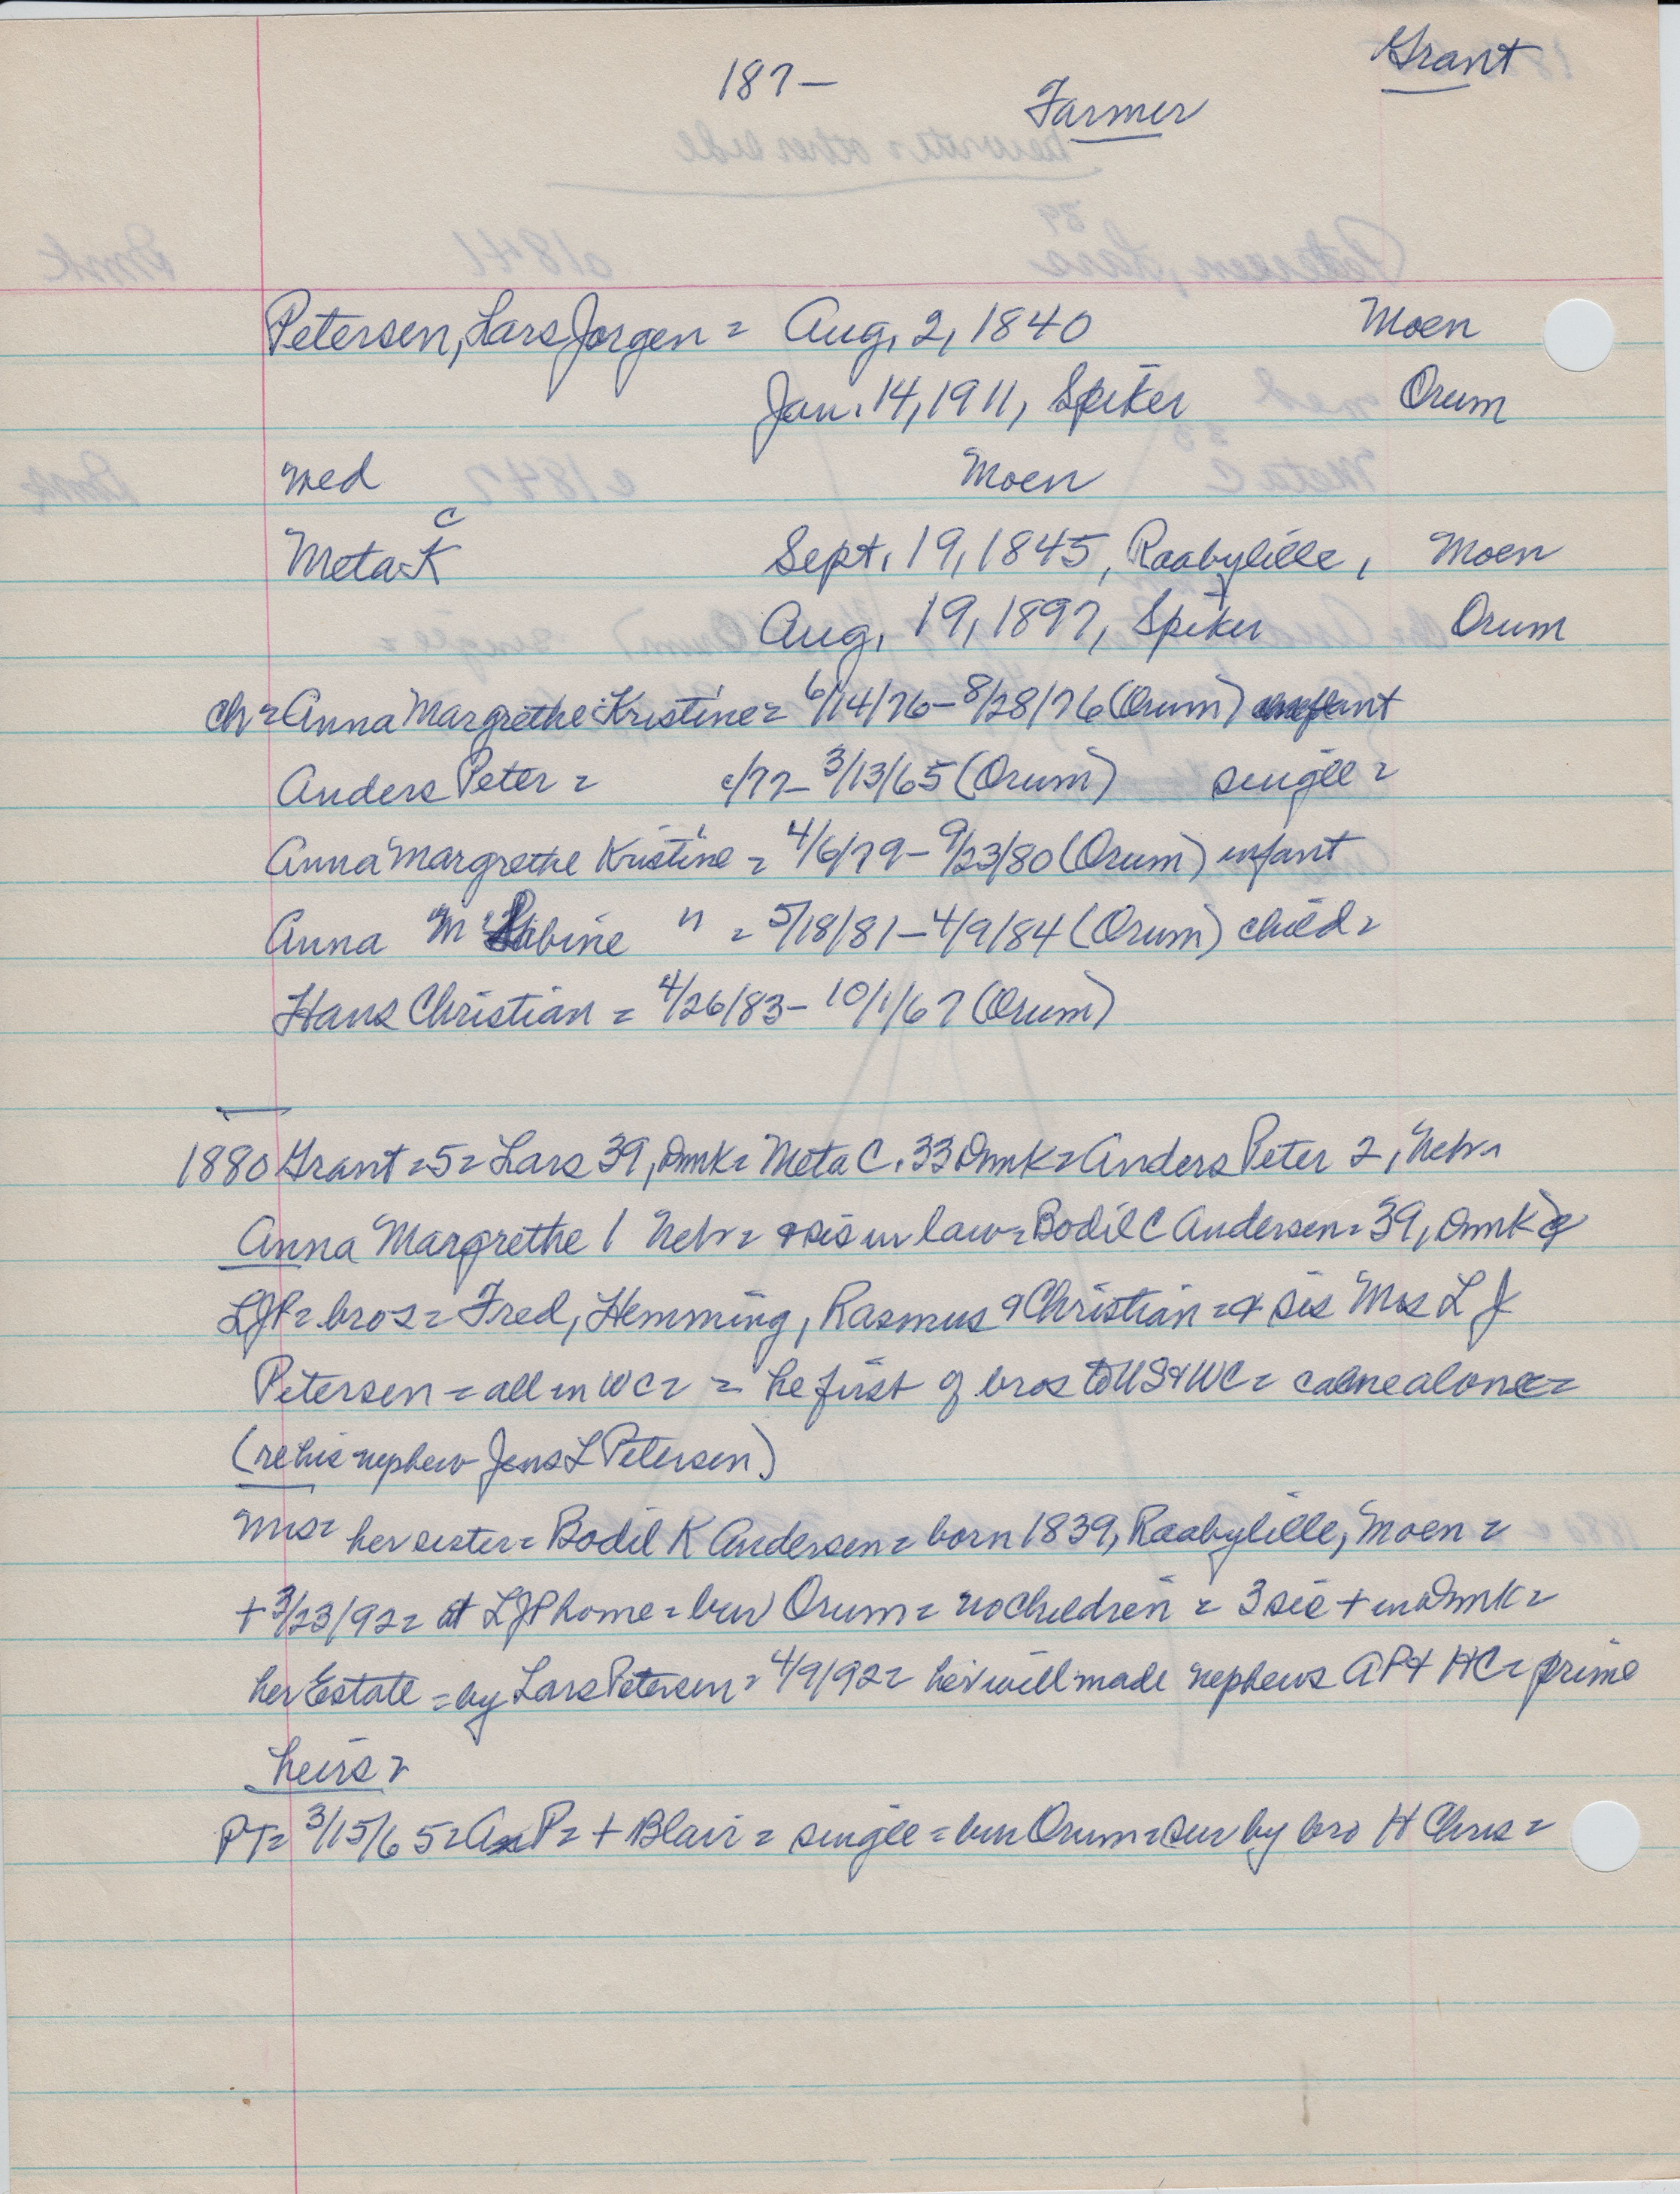 Grant
187—
Farmer
Petersen, Lars Jorgen = Aug. 2, 1840 Moen
Jan. 14, 1911, Spiker Orum
wed Moen
C
Meta K Sept. 19, 1845, Raabylille, Moen
Aug. 19, 1897, Spiker Orum
ch = Anna Margrethe Kristine = 6/14/76 – 8/28/76 (Orum) infant
Anders Peter = c/77 – 3/13/65 (Orum) single =
Anna Margrethe Kristine = 4/6/79 – 9/23/80 (Orum) infant
Anna M Sabine " = 5/18/81 – 4/9/84 (Orum) child =
Hans Christian = 4/26/83 – 10/1/67 (Orum)
1880 Grant = 5 = Lars 39, Dmk = Meta C. 33 Dmk = Anders Peter 2, Neb =
Anna Margrethe 1 Neb = & sis in law = Bodil C Andersen = 39, Dmk
LJP = bros = Fred, Hemming, Rasmus & Christian = & sis Mrs L J
Petersen = all in WC = = he first of bros to US & WC = came alone =
(re his nephew Jens L Petersen)
Mrs = her sister = Bodil K Andersen = born 1839, Raabylille, Moen =
+ 3/23/92 = at LJP home = bur Orum = no children = 3 sis + in Dmk =
her Estate = by Lars Petersen = 4/9/92 = her will made nephews AP & HC = prime
heirs =
PT = 3/15/65 = A P = + Blair = single = bur Orum = sur by bro H Chris =